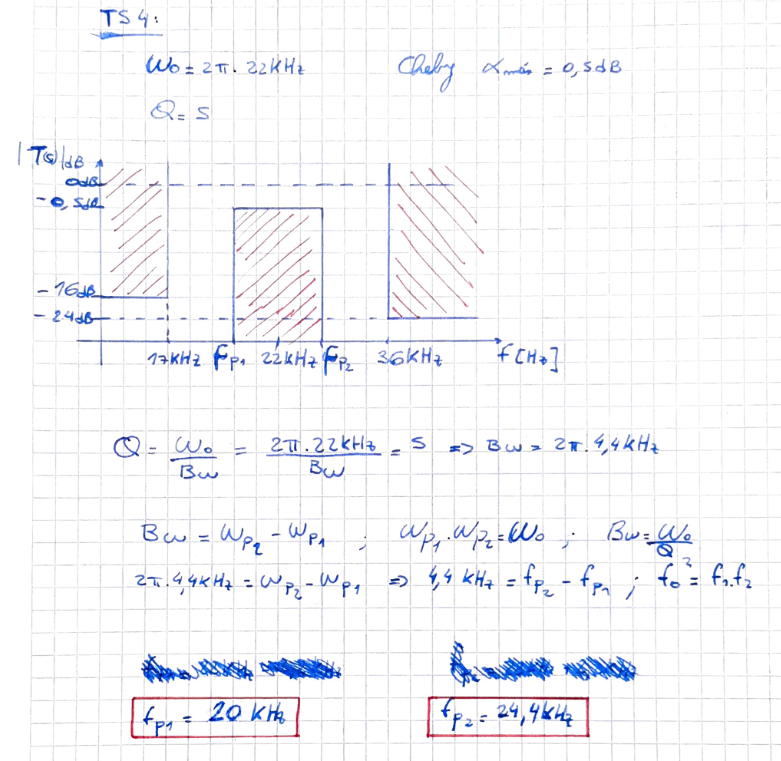 TS4:
ω₀ = 2π. 22KHz    Cheby αmáx = 0,5dB
Q = 5
|T(s)|dB
0dB
-0,5dB
-16dB
-24dB
17KHz fP1 22KHz fP2 36KHz f[Hz]
Q = ω₀/Bω = 2π.22KHz/Bω = 5 => Bω = 2π.4,4KHz
Bω = ωP2 - ωP1 ; ωP1.ωP2=ω₀ ; Bω=ω₀/Q
2π.4,4KHz = ωP2 - ωP1 => 4,4 KHz = fP2 - fP1 ; f₀² = f₁.f₂
fP1 = 20 KHz    fP2 = 24,4KHz